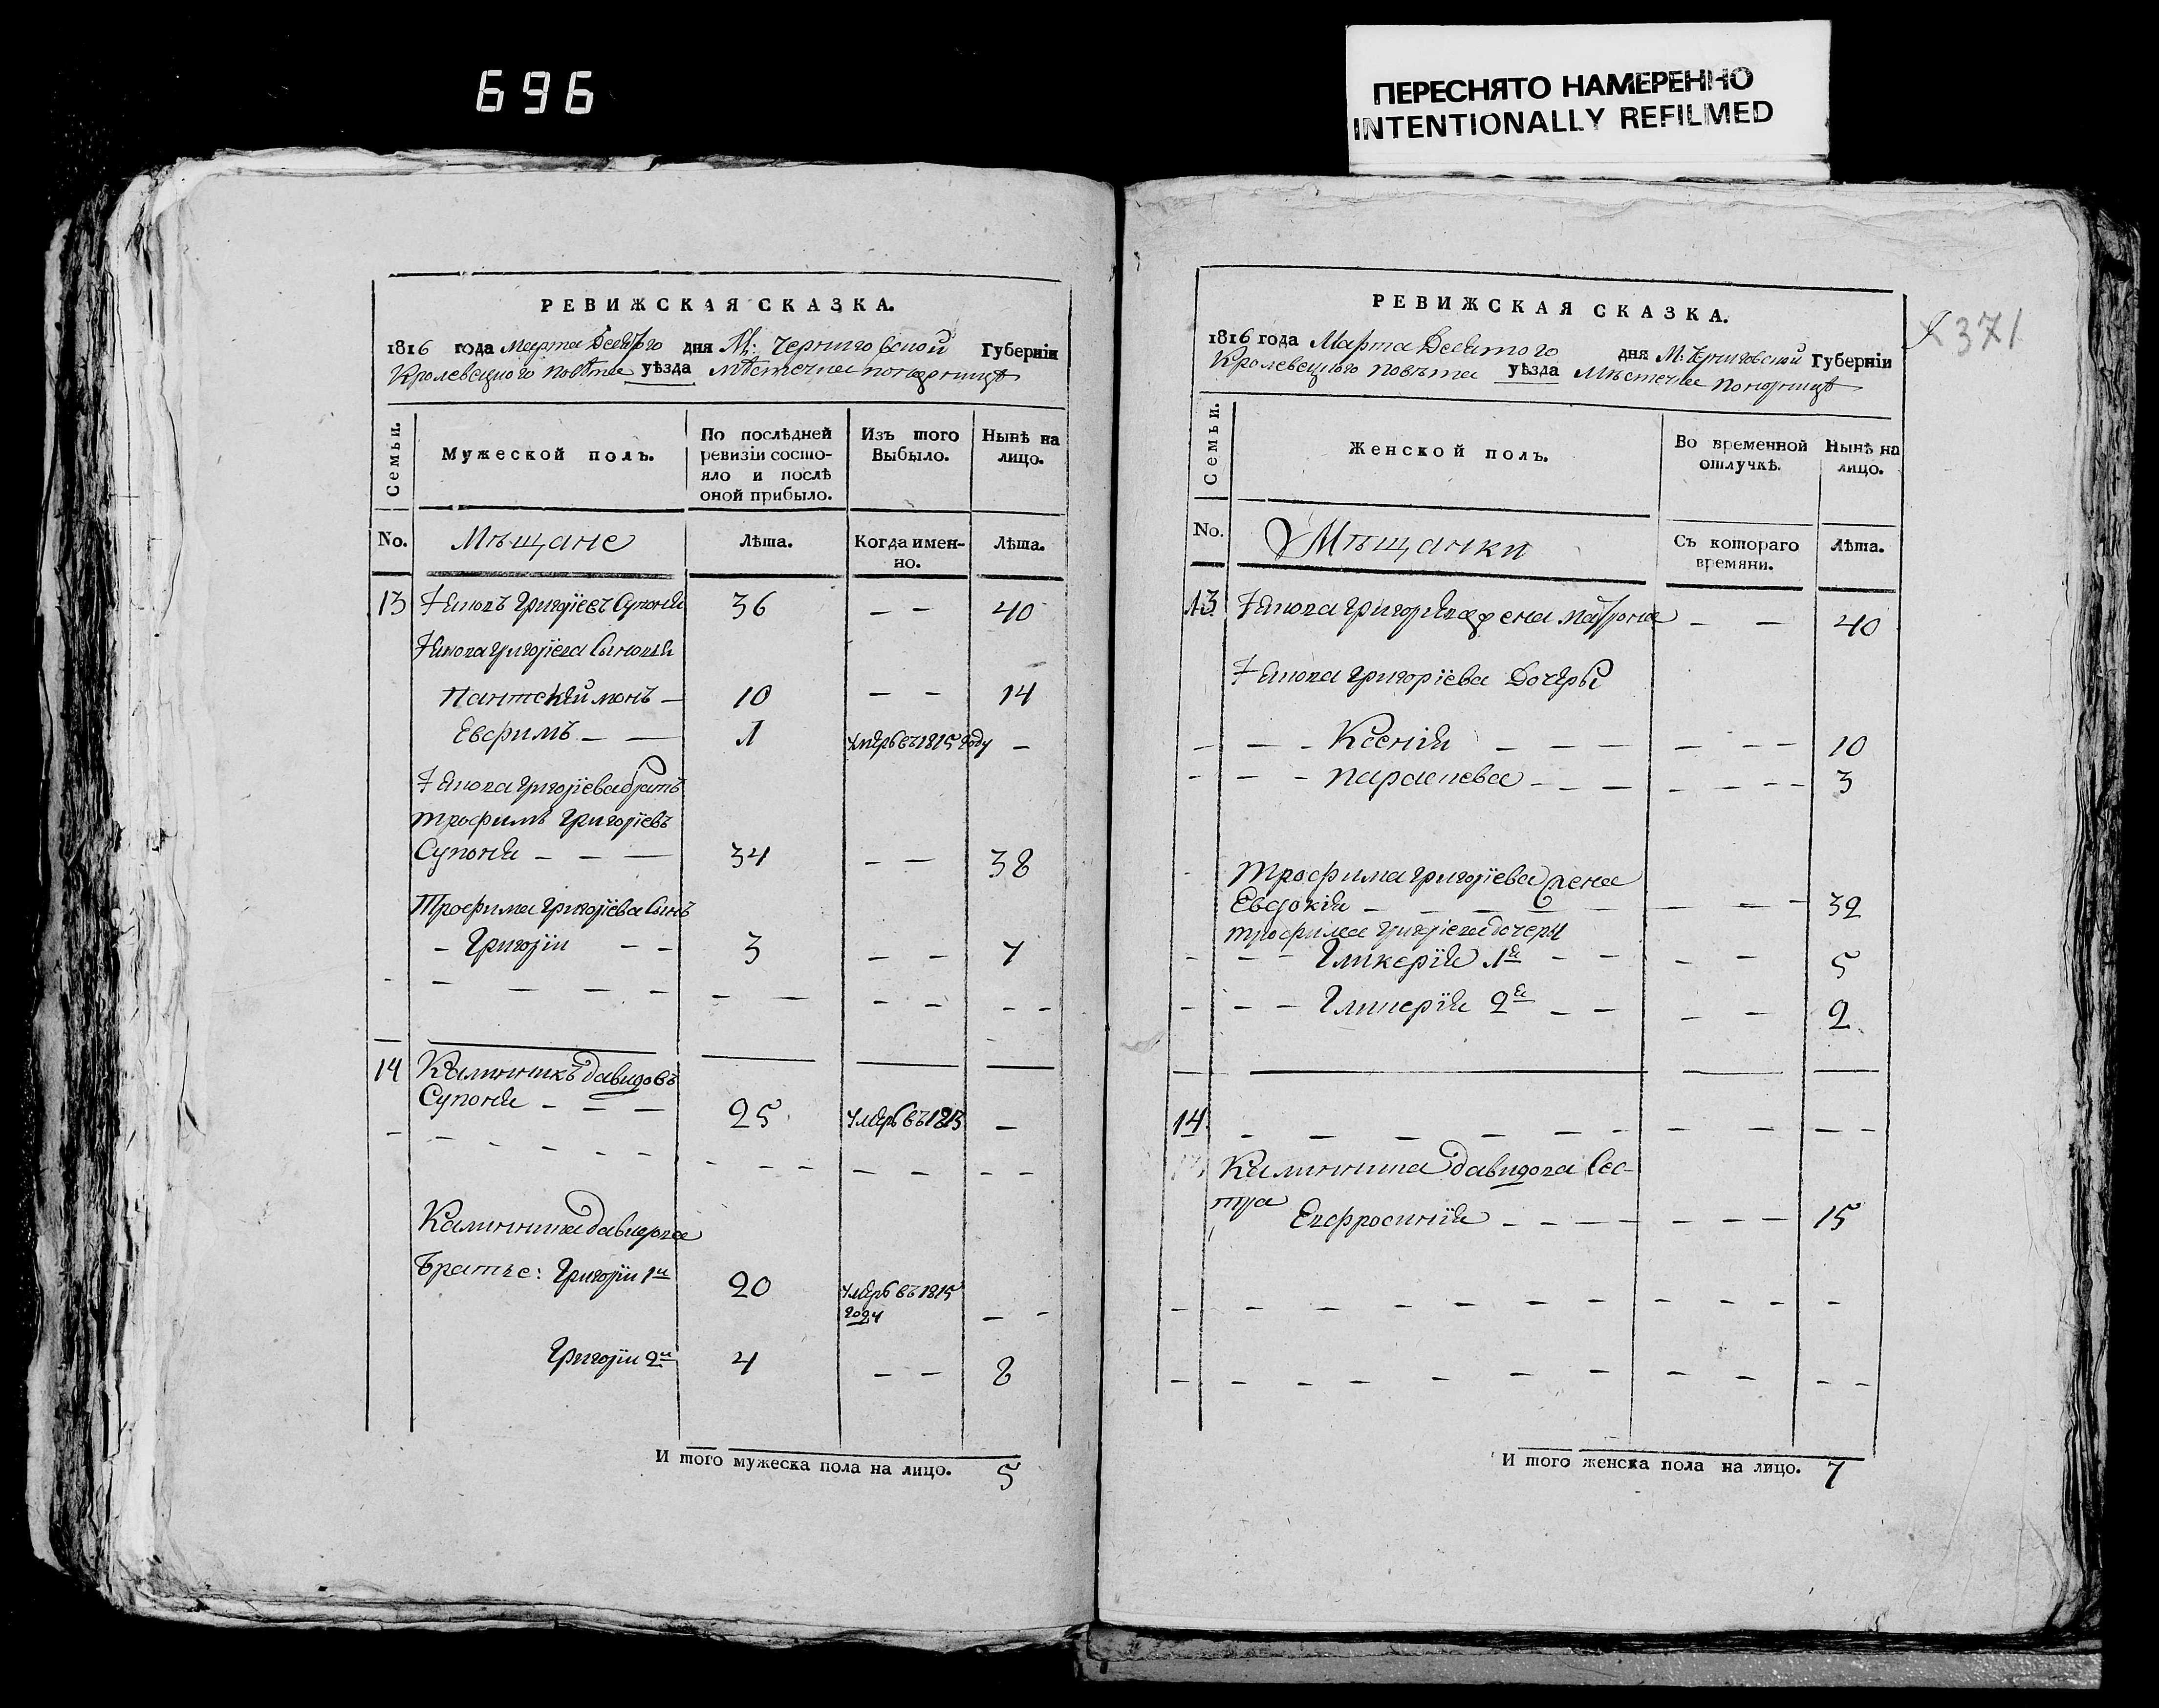 696
ПЕРЕСНЯТО НАМЕРЕННО
INTENTIONALLY REFILMED
РЕВИЖСКАЯ СКАЗКА.
1816 года марта Десятого дня М: Черниговской Губерніи
Кролевецкого Повѣта уѣзда мѣстечка понорницѣ
Семьи.
Мужеской полъ.
По послѣдней ревизіи состояло и послѣ оной прибыло.
Изъ того Выбыло.
Нынѣ на лицо.
No. Мѣщане Лѣта. Когда именно. Лѣта.
13 Яковъ Григоріевъ Супоня 36 – – 40
Якова григоріева Сыновя
Пантелеймонъ – 10 – – 14
Евфимъ – – 1 умеръ въ 1815 году –
Якова григоріева братъ
трофимъ Григоріевъ
Супоня – – – 34 – – 38
Трофима Григоріева Сынъ
– Григорій – – 3 – – 7
14 Калинникъ давидовъ
Супоня – – – 25 умеръ въ 1813 –
Калинника давидова
Братье: Григорій 1й 20 умеръ въ 1815
году – –
Григорій 2й 4 – – 8
И того мужеска пола на лицо. 5
371
РЕВИЖСКАЯ СКАЗКА.
1816 года Марта Десятого дня М: Черниговской Губерніи
Кролевецкого повѣта уѣзда Мѣстечка Понорницѣ
Семьи.
Женской полъ.
Во временной отлучкѣ.
Нынѣ на лицо.
No. Мѣщанки Съ котораго времяни. Лѣта.
13 Якова григоріева жена – – 40
Якова григоріева Дочеры
– – – Ксенія – – – – – – 10
– – – параскева – – – – – – – 3
трофима григоріева жена
Евдокія – – – – – – – – 32
трофима григоріева дочеры
– – – Гликерія 1я – – – – 5
– – – Гликерія 2я – – – – 2
14 – – – – – – – – – –
Калинника давидова Сес-
тра Евфросинія – – – – – – – 15
И того женска пола на лицо. 7